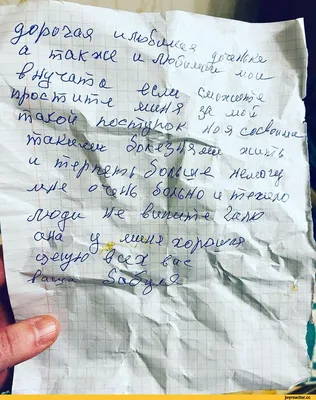 дорогая и любимая доченька
а также и любимые мои
внучата если сможете
простите меня за мой
такой поступок но я со своими
такими болезнями жить
и терпеть больше немогу
мне очень больно и тежело
люди не вините Галю
она у меня хорошая
целую всех вас
ваша бабуля
joyreactor.cc